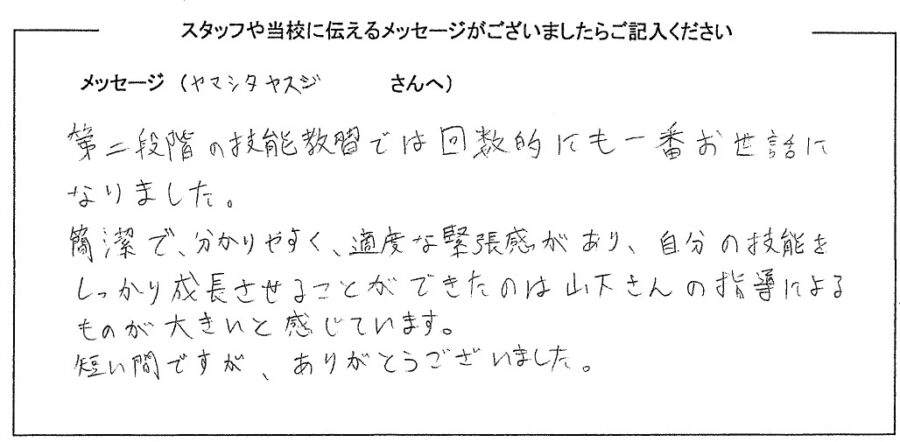 スタッフや当校に伝えるメッセージがございましたらご記入ください
メッセージ（ヤマシタヤスジ　　　さんへ）
第二段階の技能教習では回数的にも一番お世話に
なりました。
簡潔で、分かりやすく、適度な緊張感があり、自分の技能を
しっかり成長させることができたのは山下さんの指導による
ものが大きいと感じています。
短い間ですが、ありがとうございました。